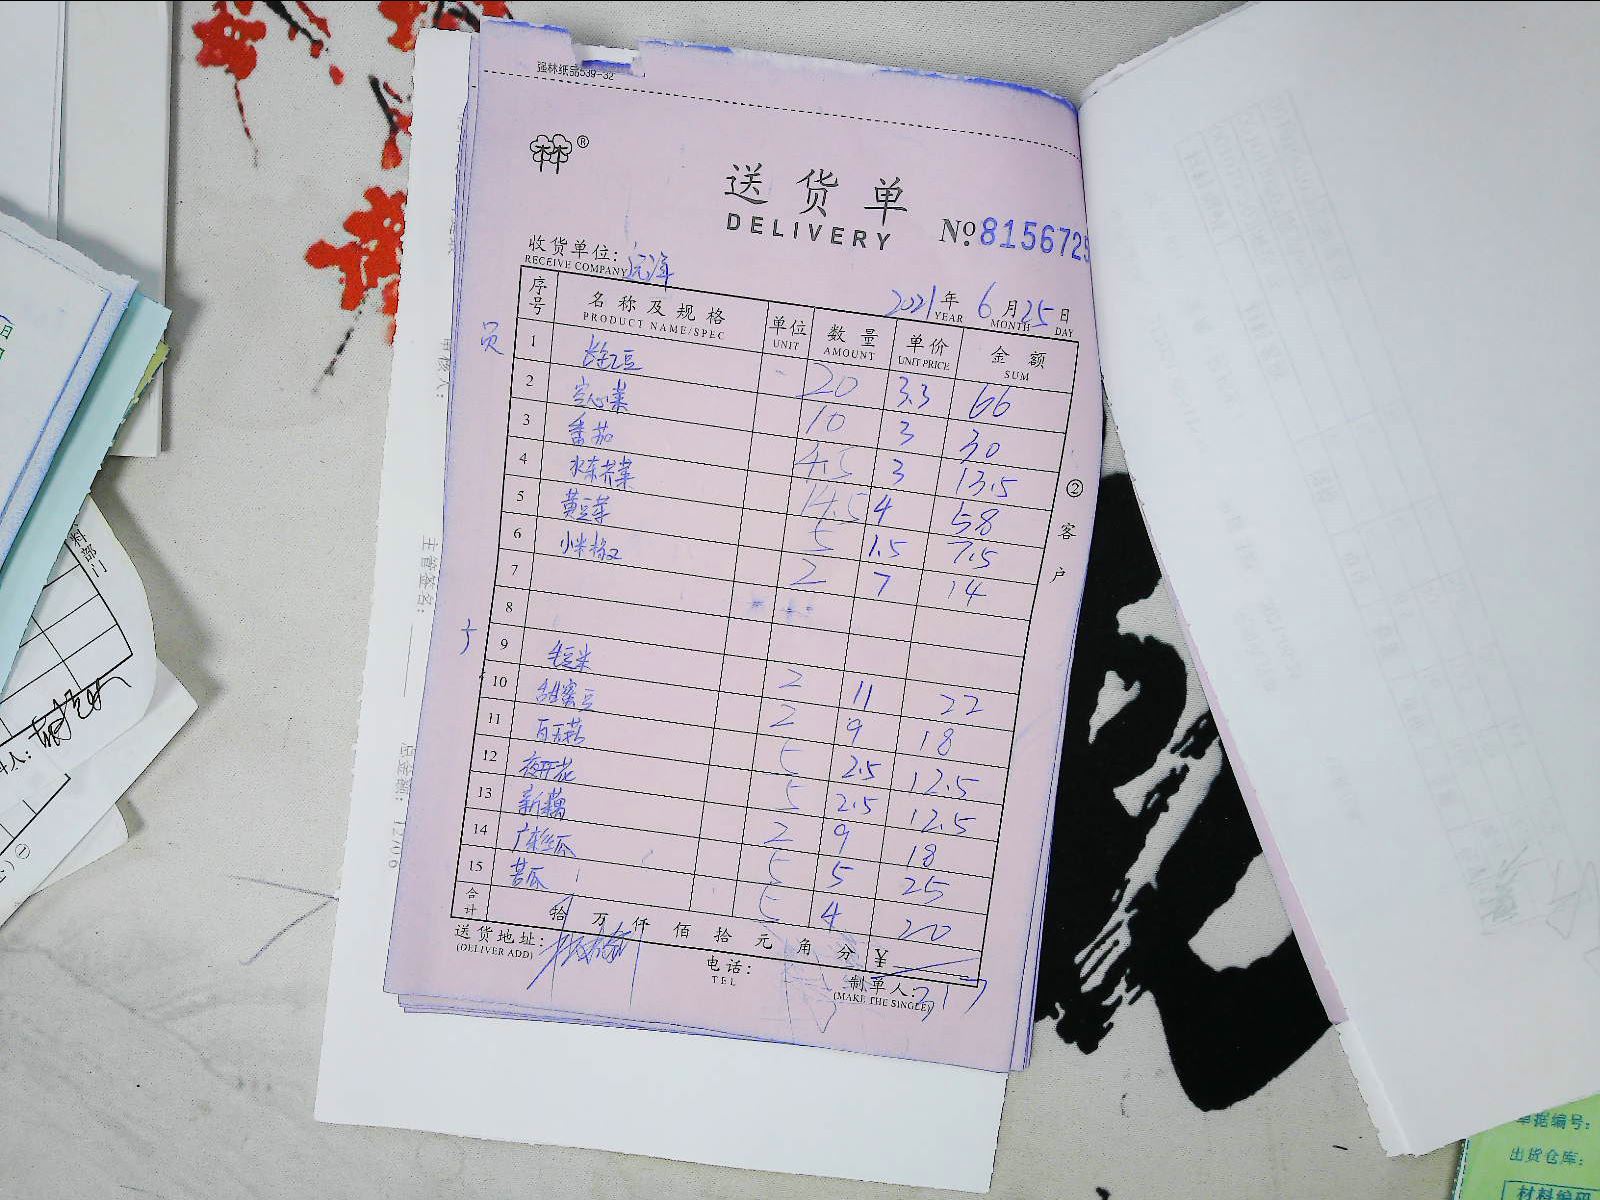 强林纸品539-32
林林®
送货单
DELIVERY
No. 8156725
收货单位: 远洋
RECEIVE COMPANY
2021年 6月 25日
YEAR MONTH DAY
序号 名称及规格 单位 数量 单价 金额
PRODUCT NAME/SPEC UNIT AMOUNT UNIT PRICE SUM
员
1 长豇豆 20 3.3 66
2 空心菜 10 3 30
3 番茄 4.5 3 13.5
4 水东芥菜 14.5 4 58
5 黄豆芽 5 1.5 7.5
6 小米椒 2 7 14
7
8
9 毛豆米 2 11 22
10 甜蜜豆 2 9 18
11 5 2.5 12.5
12 夜开花 5 2.5 12.5
13 新藕 2 9 18
14 广东丝瓜 5 5 25
15 苦瓜 5 4 20
合计 拾 万 仟 佰 拾 元 角 分 ¥
317
送货地址:
(DELIVER ADD)
电话:
TEL
制单人:
(MAKE THE SINGLE)
②客户
审核人:
主管签名:
料部门
日
单据编号:
出货仓库:
材料编码